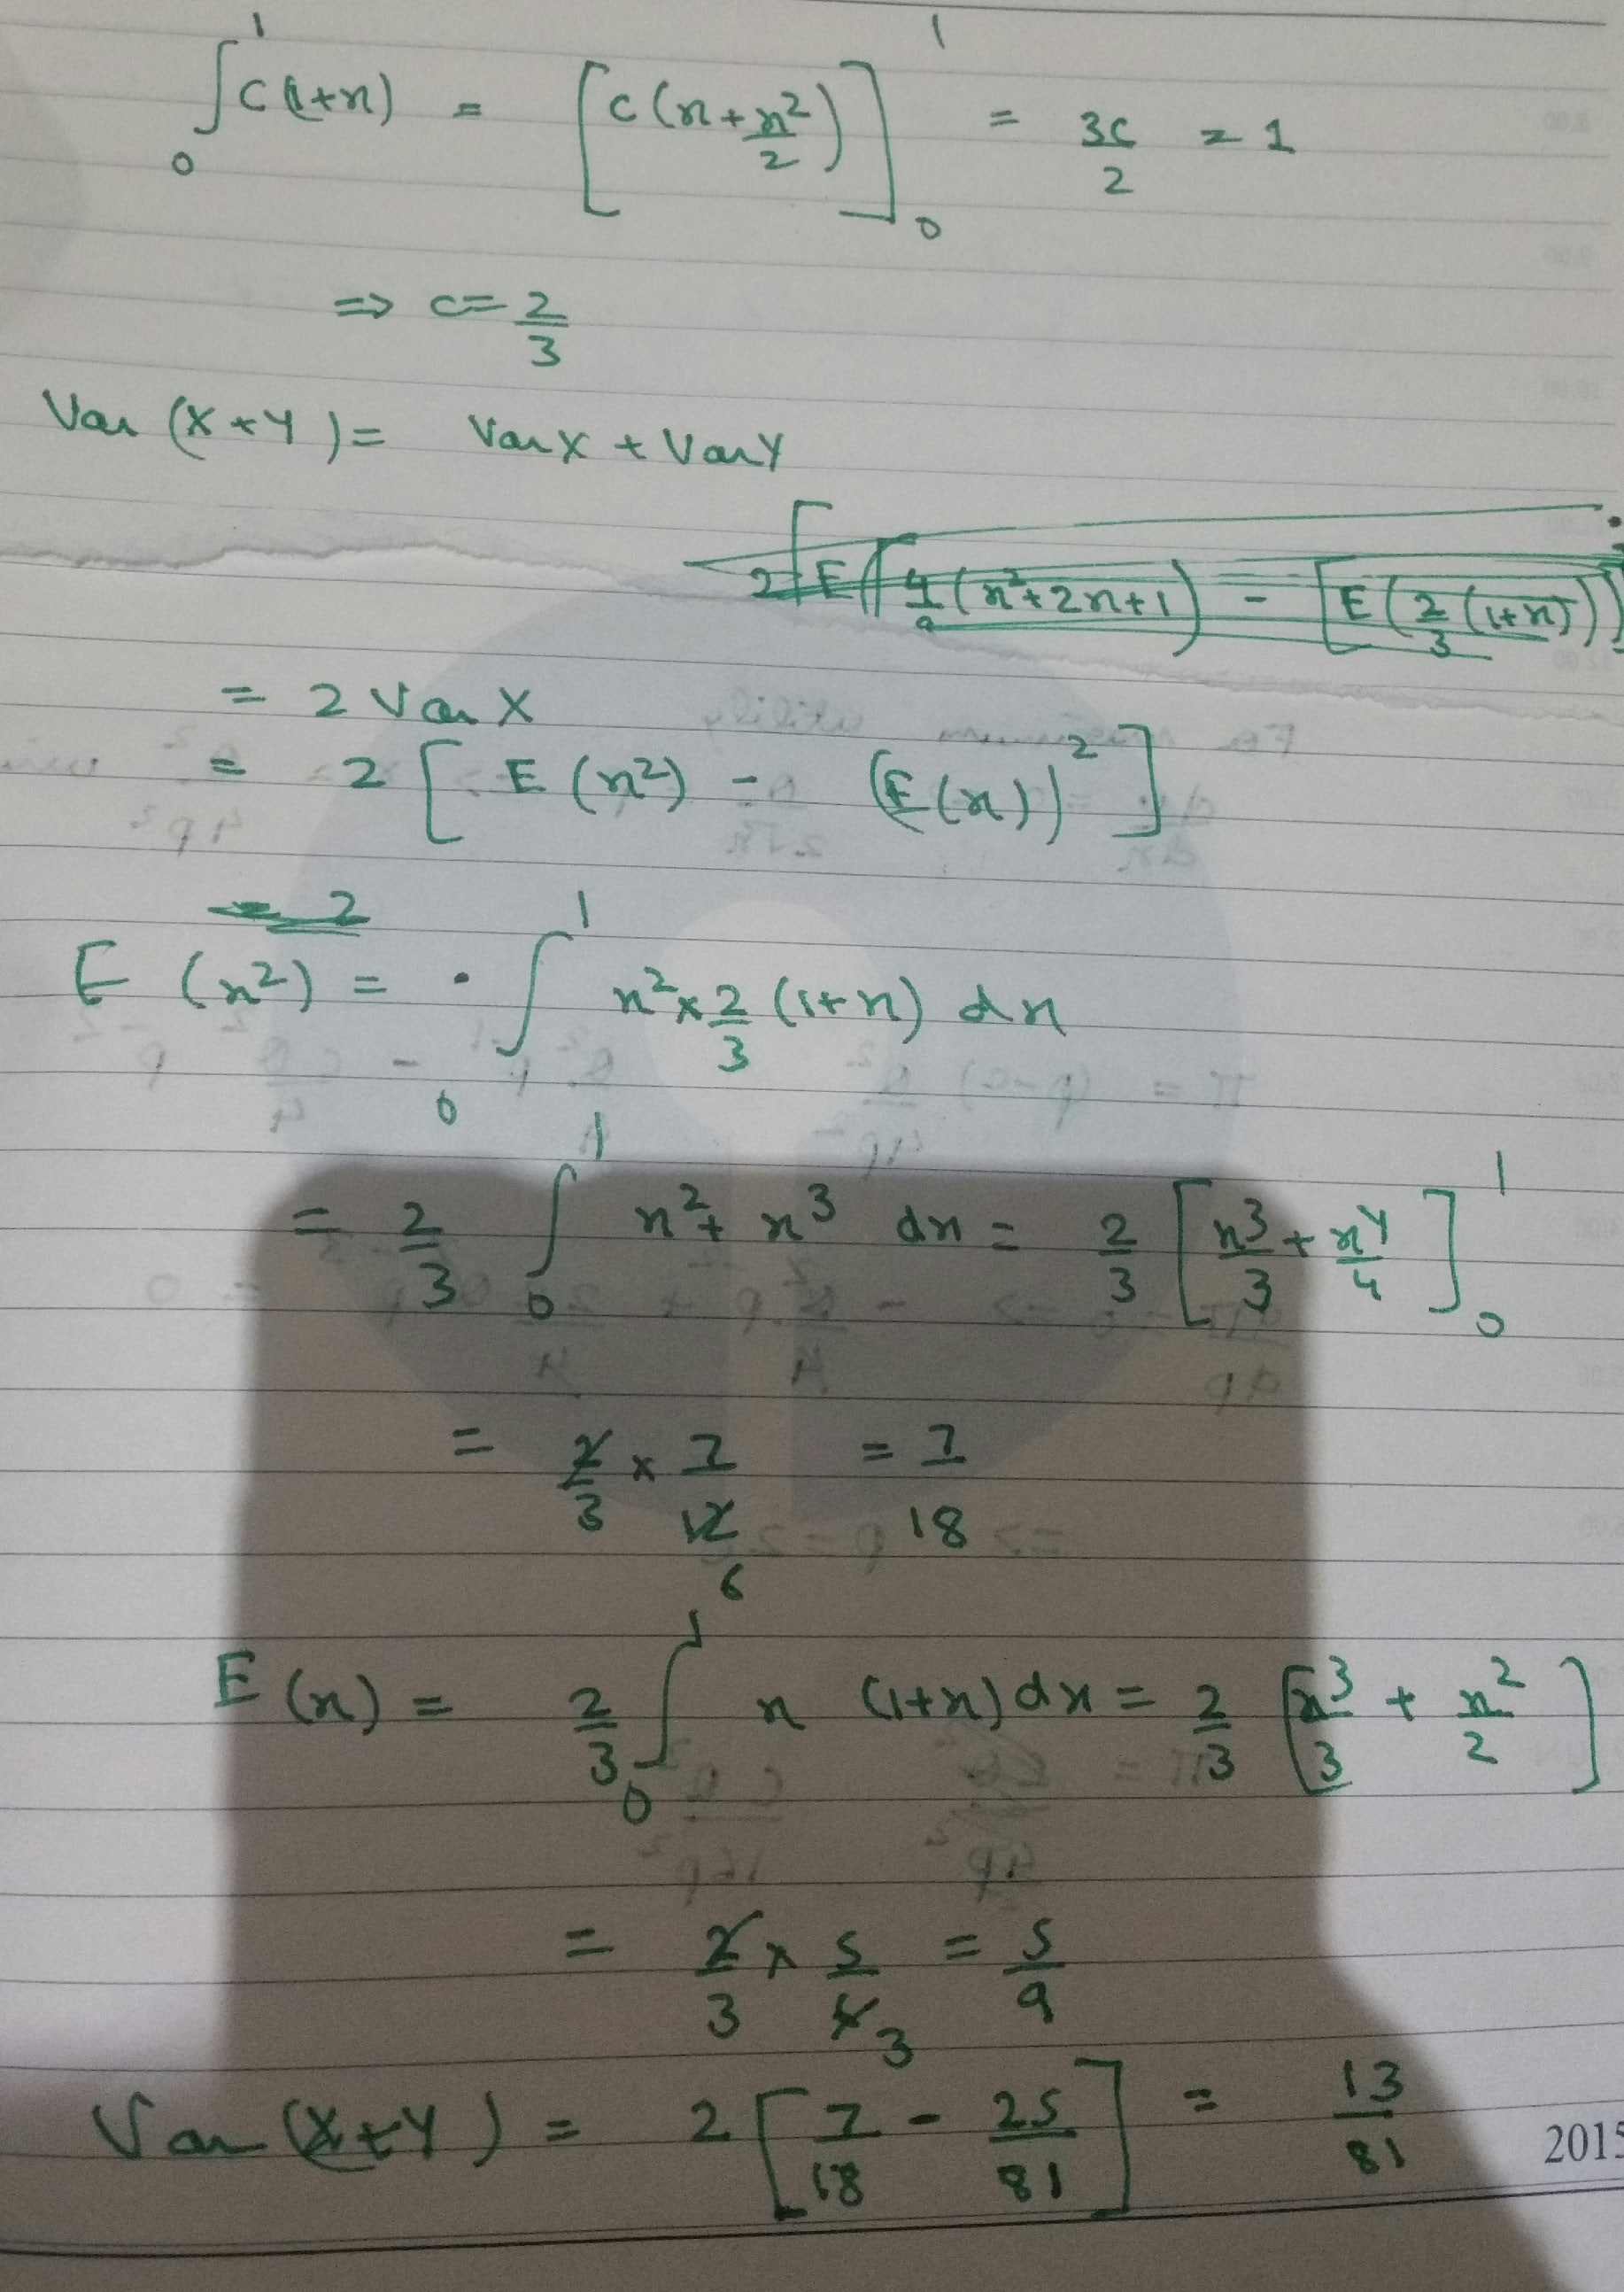 ∫₀¹ c(1+x) = [c(x + x²/2)]₀¹ = 3c/2 = 1
⇒ c = 2/3
Var (X+Y) = Var X + Var Y
2[E(4/9(x²+2x+1)) - [E(2/3(1+x))]
= 2 Var X
= 2 [E(x²) - (E(x))²]
= 2
E(x²) = ∫₀¹ x² × 2/3 (1+x) dx
= 2/3 ∫₀¹ x² + x³ dx = 2/3 [x³/3 + x⁴/4]₀¹
= 2/3 × 7/12 6 = 7/18
E(x) = 2/3 ∫₀¹ x (1+x) dx = 2/3 [x³/3 + x²/2]
= 2/3 × 5/6 3 = 5/9
Var (X+Y) = 2 [7/18 - 25/81] = 13/81
2015